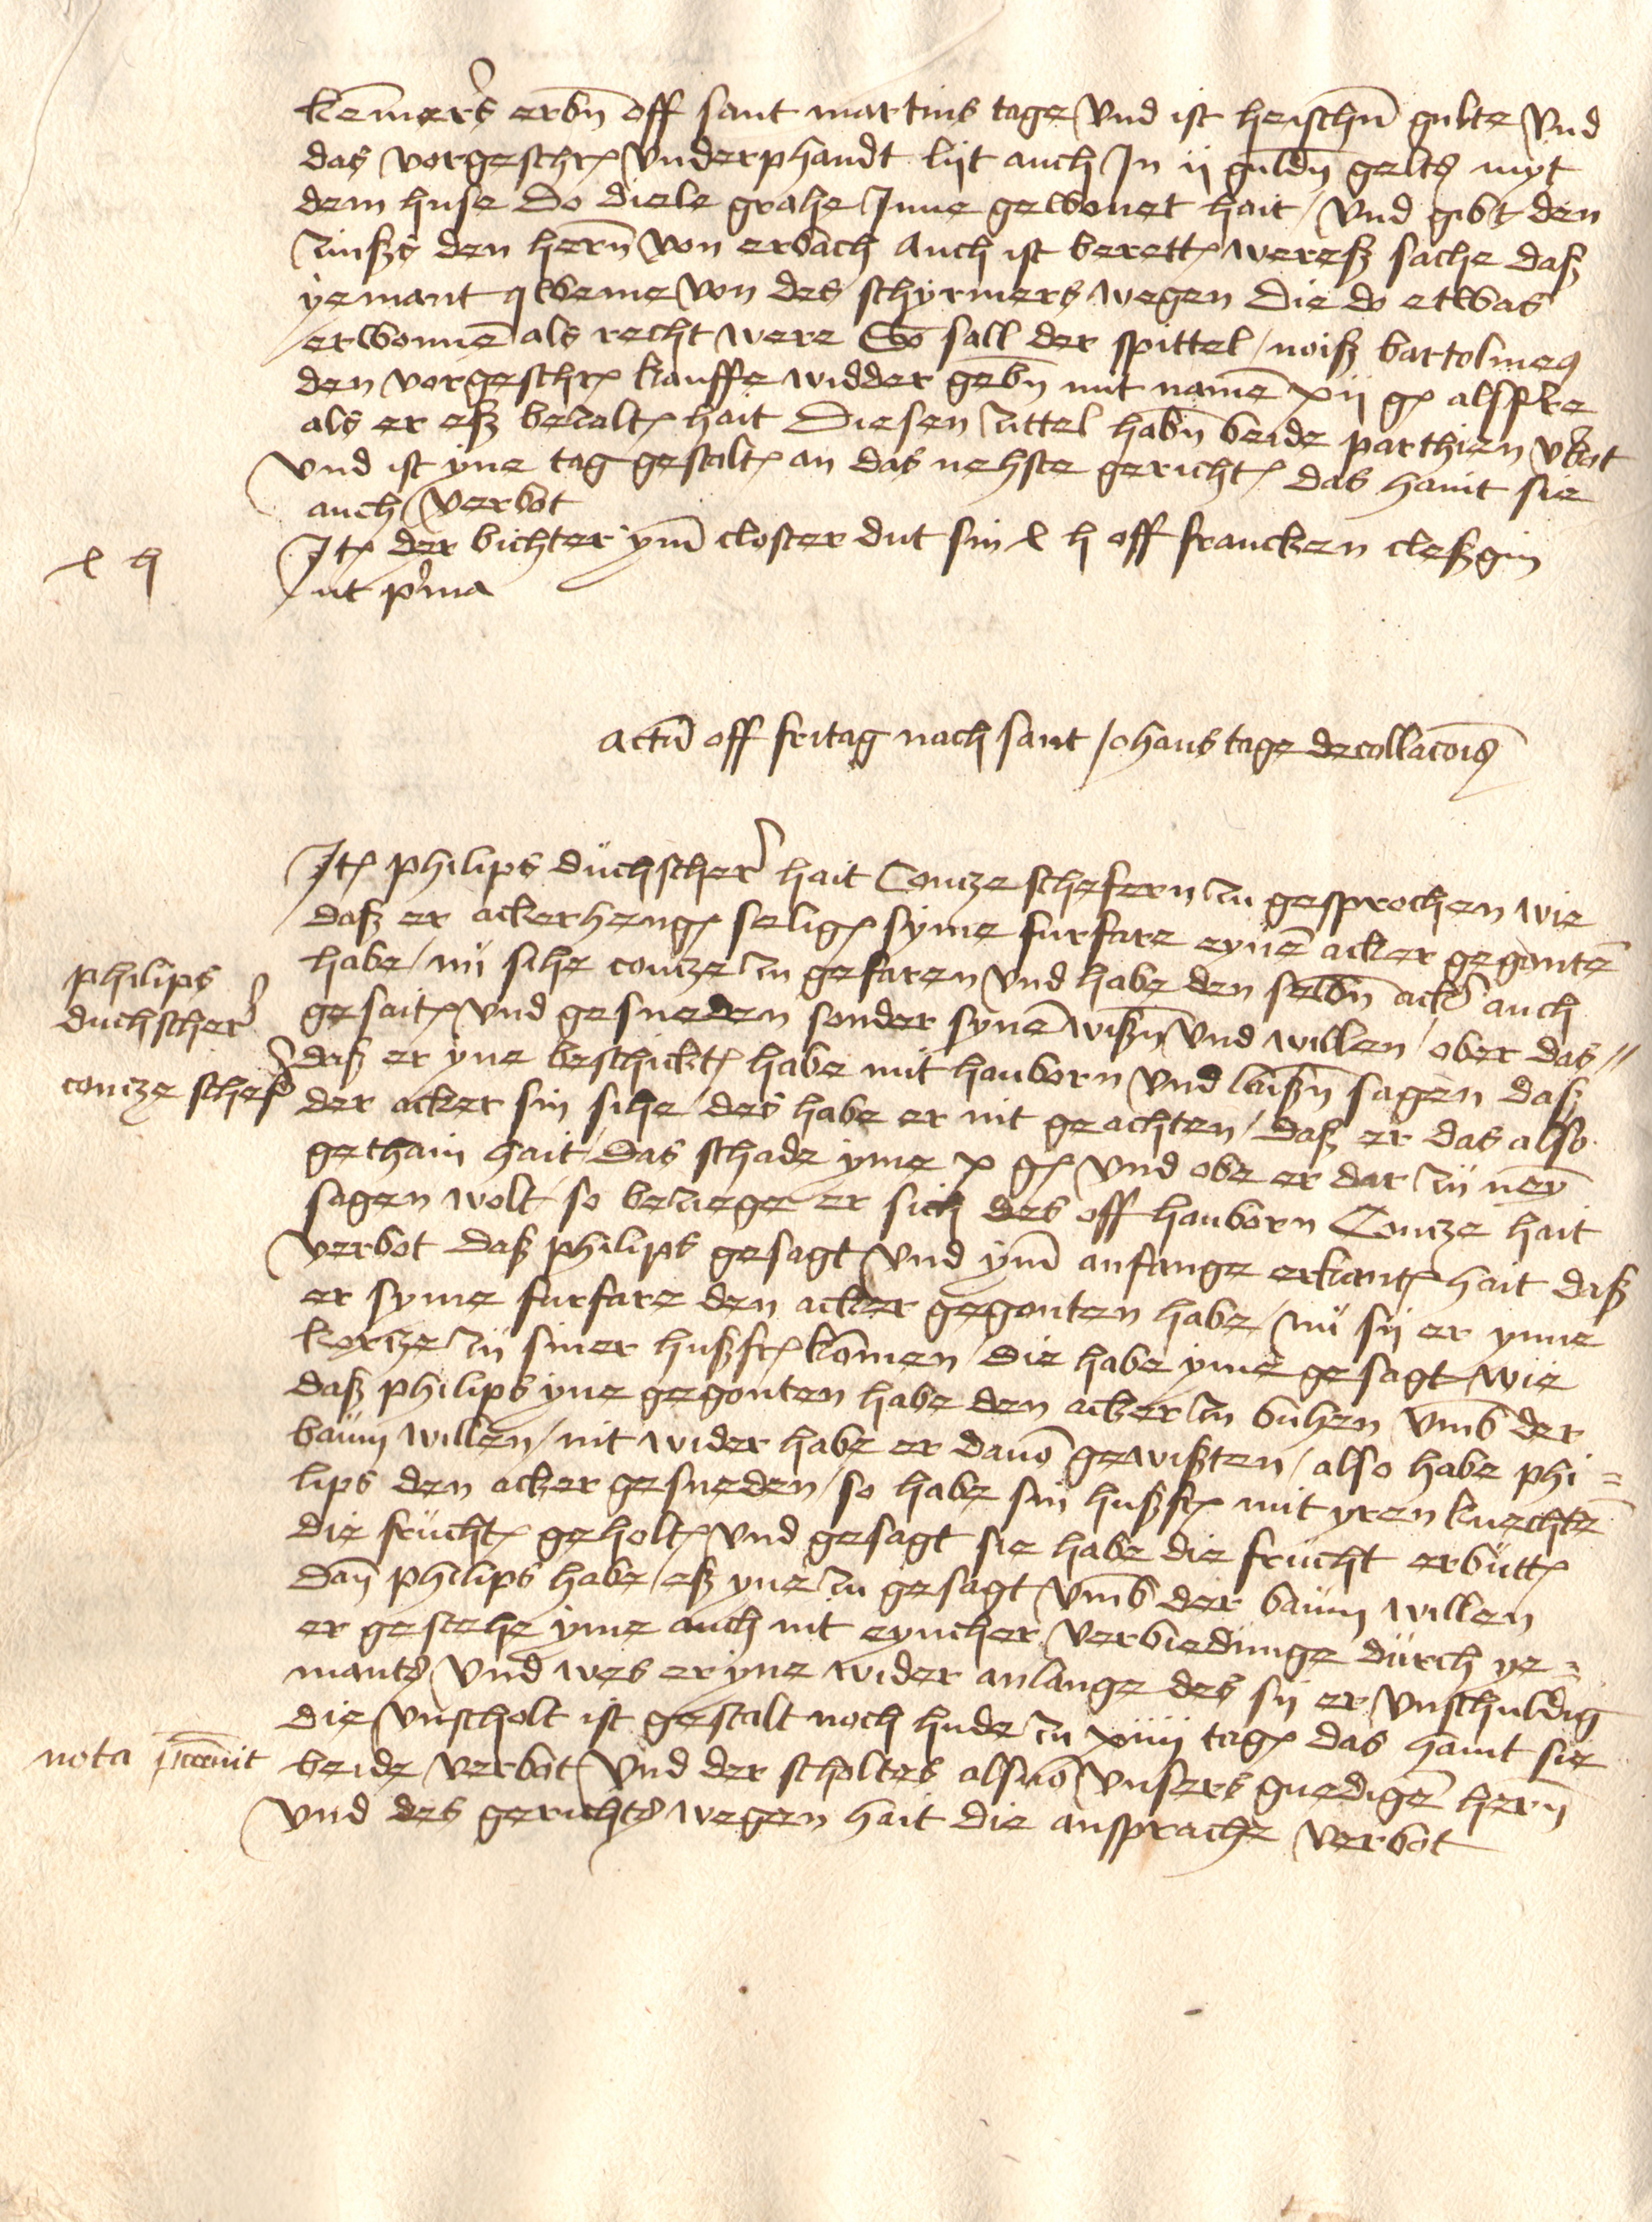 kem̄ers erbn̄ off sant martins tage vnd ist heischn̄ gulte vnd
das vorgeschr. vnderphandt lijt auch Jn ij guldn̄ gelts myt
dem huse do diele grahe Jnne gewonet hait / vnd gibt den
zinßs den hern̄ von erbach Auch ist berett. wereß sache daß
yemant qweme von des schyrmers wegen Die do etwas
erwonnē als recht were So sall der spittel / noiß bartolmeꝰ
den vorgeschr. kauffe widder gebn̄ mit namē xij g.
als er eß bezalt. hait Diesen zittel habn̄ beide parthien v'bot
vnd ist yne tag gestalt. an das nehste gericht. das haint sie
auch verbot
x h
Jt. der bichter ym̄ closter dut sin x h off francken cleßgin
ut p'ma
Actū off fritag nach sant Johans tage decollacōis
Jt. philips duchscher' hait Contze schefern zu gesprochen wie
daß er ackerheng. selig. syme furfare eynē acker gegontē
habe / nü sihe contze zu gefaren vnd habe den selbn̄ ack' auch
philips
duchscher'
gesait. vnd gesneden sonder synē wißn̄ vnd willen / ober das //
daß er yne beschickt. habe mit hanborn vnd laißn̄ sagen daß
contze schef'
der acker sin sihe / des habe er nit geachten / daß er das also
gethain hait / Das schade yme x g. vnd obe er dar zü neyn
sagen wolt / so beziege er sich des off hanborn Contze hait
verbot daß philips gesagt vnd ym̄ anfange erkant. hait daß
er syme furfare den acker gegonten habe / nü sij er ynne
kortze zü siner hußfr. kōmen / die habe yme gesagt wie
daß philips yne gegonten habe den acker zu buhen vm̄b der
baum willen / nit wider habe er dauō gewißten / also habe phi=
lips den acker gesneden / so habe sin hußfr. mit yren knechtē
die frücht. geholt. vnd gesagt sie habe die frucht erbütt.
Dan̄ philips habe / eß yne zu gesagt vm̄b der baum willen
er gestehe yme auch nit eyncher verbiedunge durch ye=
mants vnd wes er yne wider anlange des sij er vnschuldig
Die vnscholt ist gestalt noch hude zu xiiij tag. das haint sie
nota
beide verbot vnd der scholtes alsuō vnsers gnedigē hern̄
vnd des gerichts wegen hait die ansprache verbot